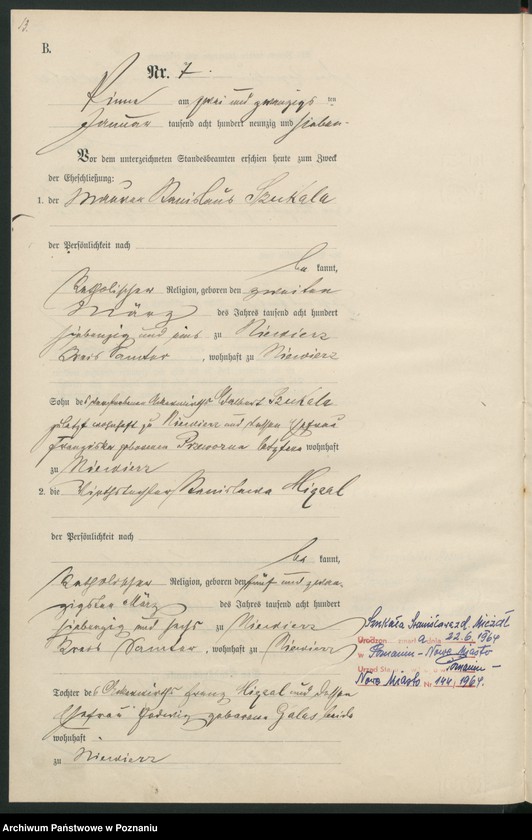 B.
Nr. 7.
Pinne am zwei und zwanzigsten
Januar tausend acht hundert neunzig und sieben.
Vor dem unterzeichneten Standesbeamten erschien heute zum Zweck
der Eheschließung:
1. der Maurer Stanislaus Szukala
der Persönlichkeit nach
be kannt,
katholischer Religion, geboren den zweiten
März des Jahres tausend acht hundert
siebenzig und eins zu Niewierz
Kreis Samter, wohnhaft zu Niewierz
Sohn des verstorbenen Ackerwirths Szukala
zuletzt wohnhaft zu Niewierz und dessen Ehefrau
Franziska geborenen letztere wohnhaft
zu Niewierz
2. die Wirthstochter Stanislawa Migdal
der Persönlichkeit nach
be kannt,
katholischer Religion, geboren den fünf und zwan-
zigsten März des Jahres tausend acht hundert
siebenzig und sechs zu Niewierz
Kreis Samter, wohnhaft zu Niewierz
Tochter des Ackerwirths Franz Migdal und dessen
Ehefrau Hedwig geborene Galas beide
wohnhaft
zu Niewierz
Szukała Stanisława zd. Migdał
22.6.1964
w Poznaniu - Nowe Miasto
Urząd Sta
Poznaniu -
Nowe Miasto Nr 144, 1964.
Archiwum Państwowe w Poznaniu